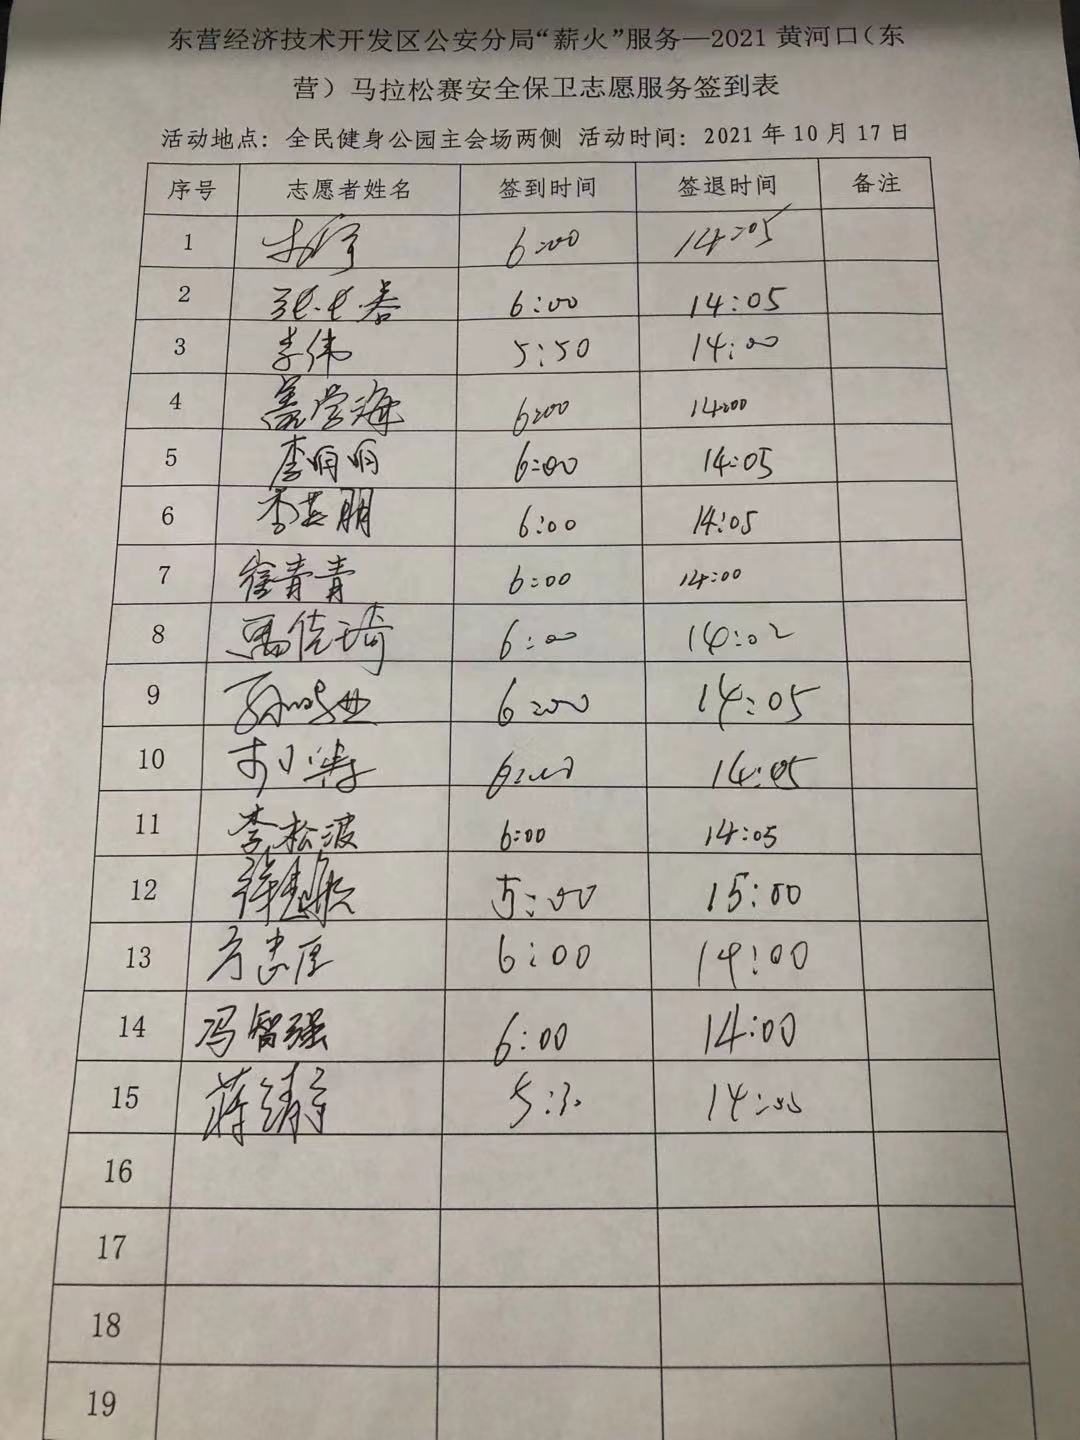 东营经济技术开发区公安分局“薪火”服务—2021 黄河口（东
营）马拉松赛安全保卫志愿服务签到表
活动地点：全民健身公园主会场两侧 活动时间：2021 年 10 月 17 日
序号 志愿者姓名 签到时间 签退时间 备注
1 6:00 14:05
2 6:00 14:05
3 李伟 5:50 14:00
4 盖学海 6:00 14:00
5 李明明 6:00 14:05
6 李英朋 6:00 14:05
7 徐青青 6:00 14:00
8 6:00 14:02
9 6:00 14:05
10 6:00 14:05
11 李松波 6:00 14:05
12 5:00 15:00
13 6:00 14:00
14 冯智强 6:00 14:00
15 5:30 14:00
16
17
18
19